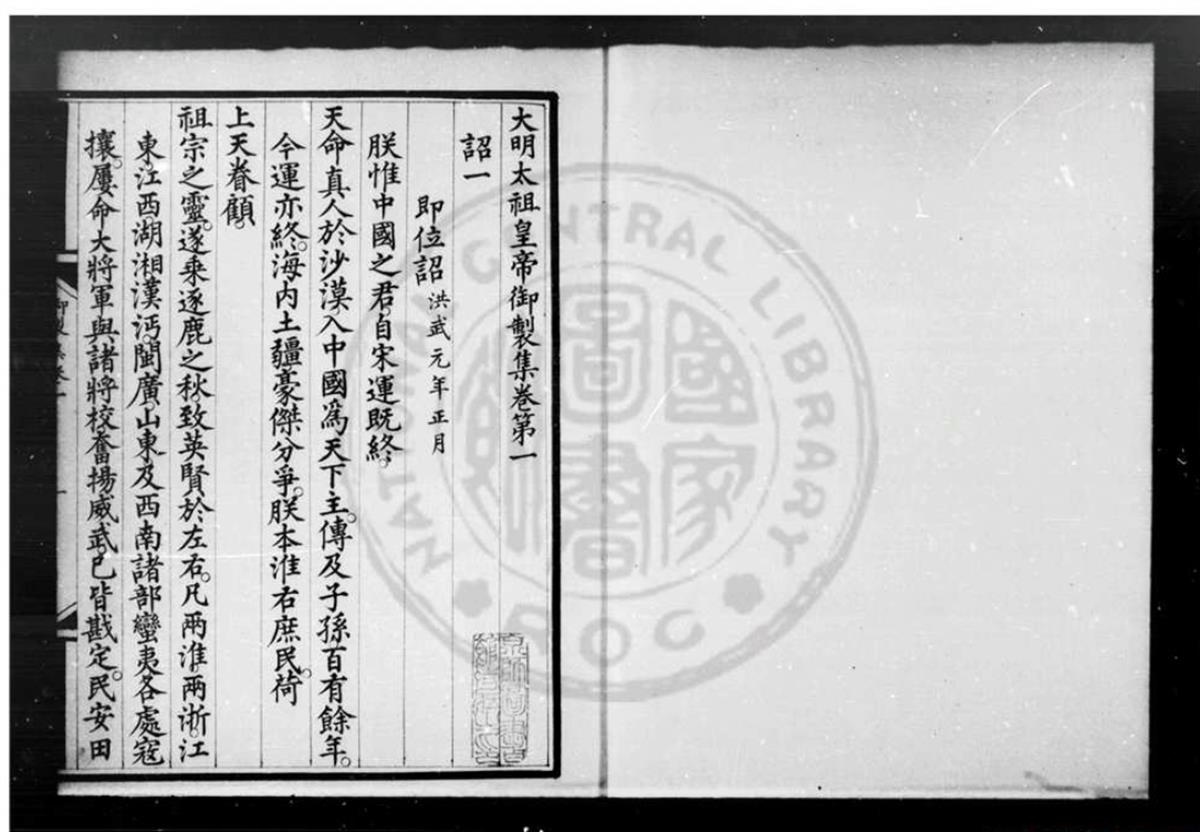 大明太祖皇帝御製集卷第一
詔一
即位詔 洪武元年正月
朕惟中國之君。自宋運既終。
天命真人於沙漠。入中國為天下主。傳及子孫百有餘年。
今運亦終。海内土疆豪傑分爭。朕本淮右庶民。荷
上天眷顧。
祖宗之靈。遂乘逐鹿之秋。致英賢於左右。凡兩淮兩浙。江
東。江西湖湘漢沔。閩廣山東。及西南諸部蠻夷。各處寇
攘。屢命大將軍與諸將校奮揚威武。已皆戡定。民安田
NATIONAL CENTRAL LIBRARY
國家圖書
ROC